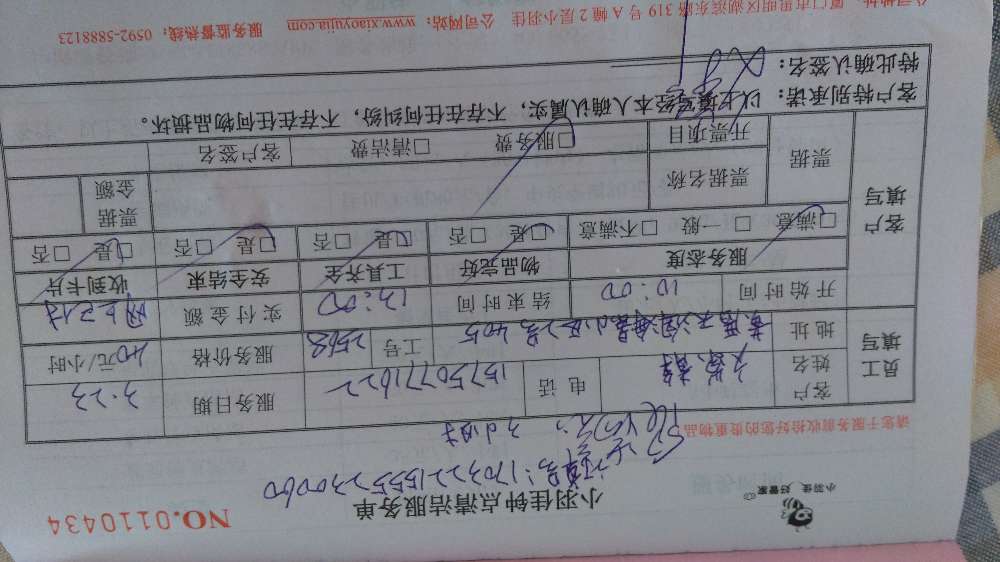 小羽佳 好管家
小羽佳钟点清洁服务单
NO.0110434
订单号:170322155523000
请您于服务前收拾好您的贵重物品
3小时
员工填写
客户姓名
电话 15750771622
服务日期 3.23
地址 405
工号 2568
服务价格 40元/小时
开始时间 10:00
结束时间 13:00
实付金额 网上支付
客户填写
服务态度 物品完好 工具齐全 安全结束 收到卡片
□满意 □一般 □不满意 □是 □否 □是 □否 □是 □否 □是 □否
票据 票据名称 票据金额
开票项目 □服务费 □清洁费 客户签名
客户特别承诺: 以上填写经本人确认属实,不存在任何纠纷,不存在任何物品损坏。
特此确认签名:
厦门市思明区湖滨东路 319 号 A 幢 2 层小羽佳 公司网站:www.xiaoyujia.com 服务监督热线:0592-5888123